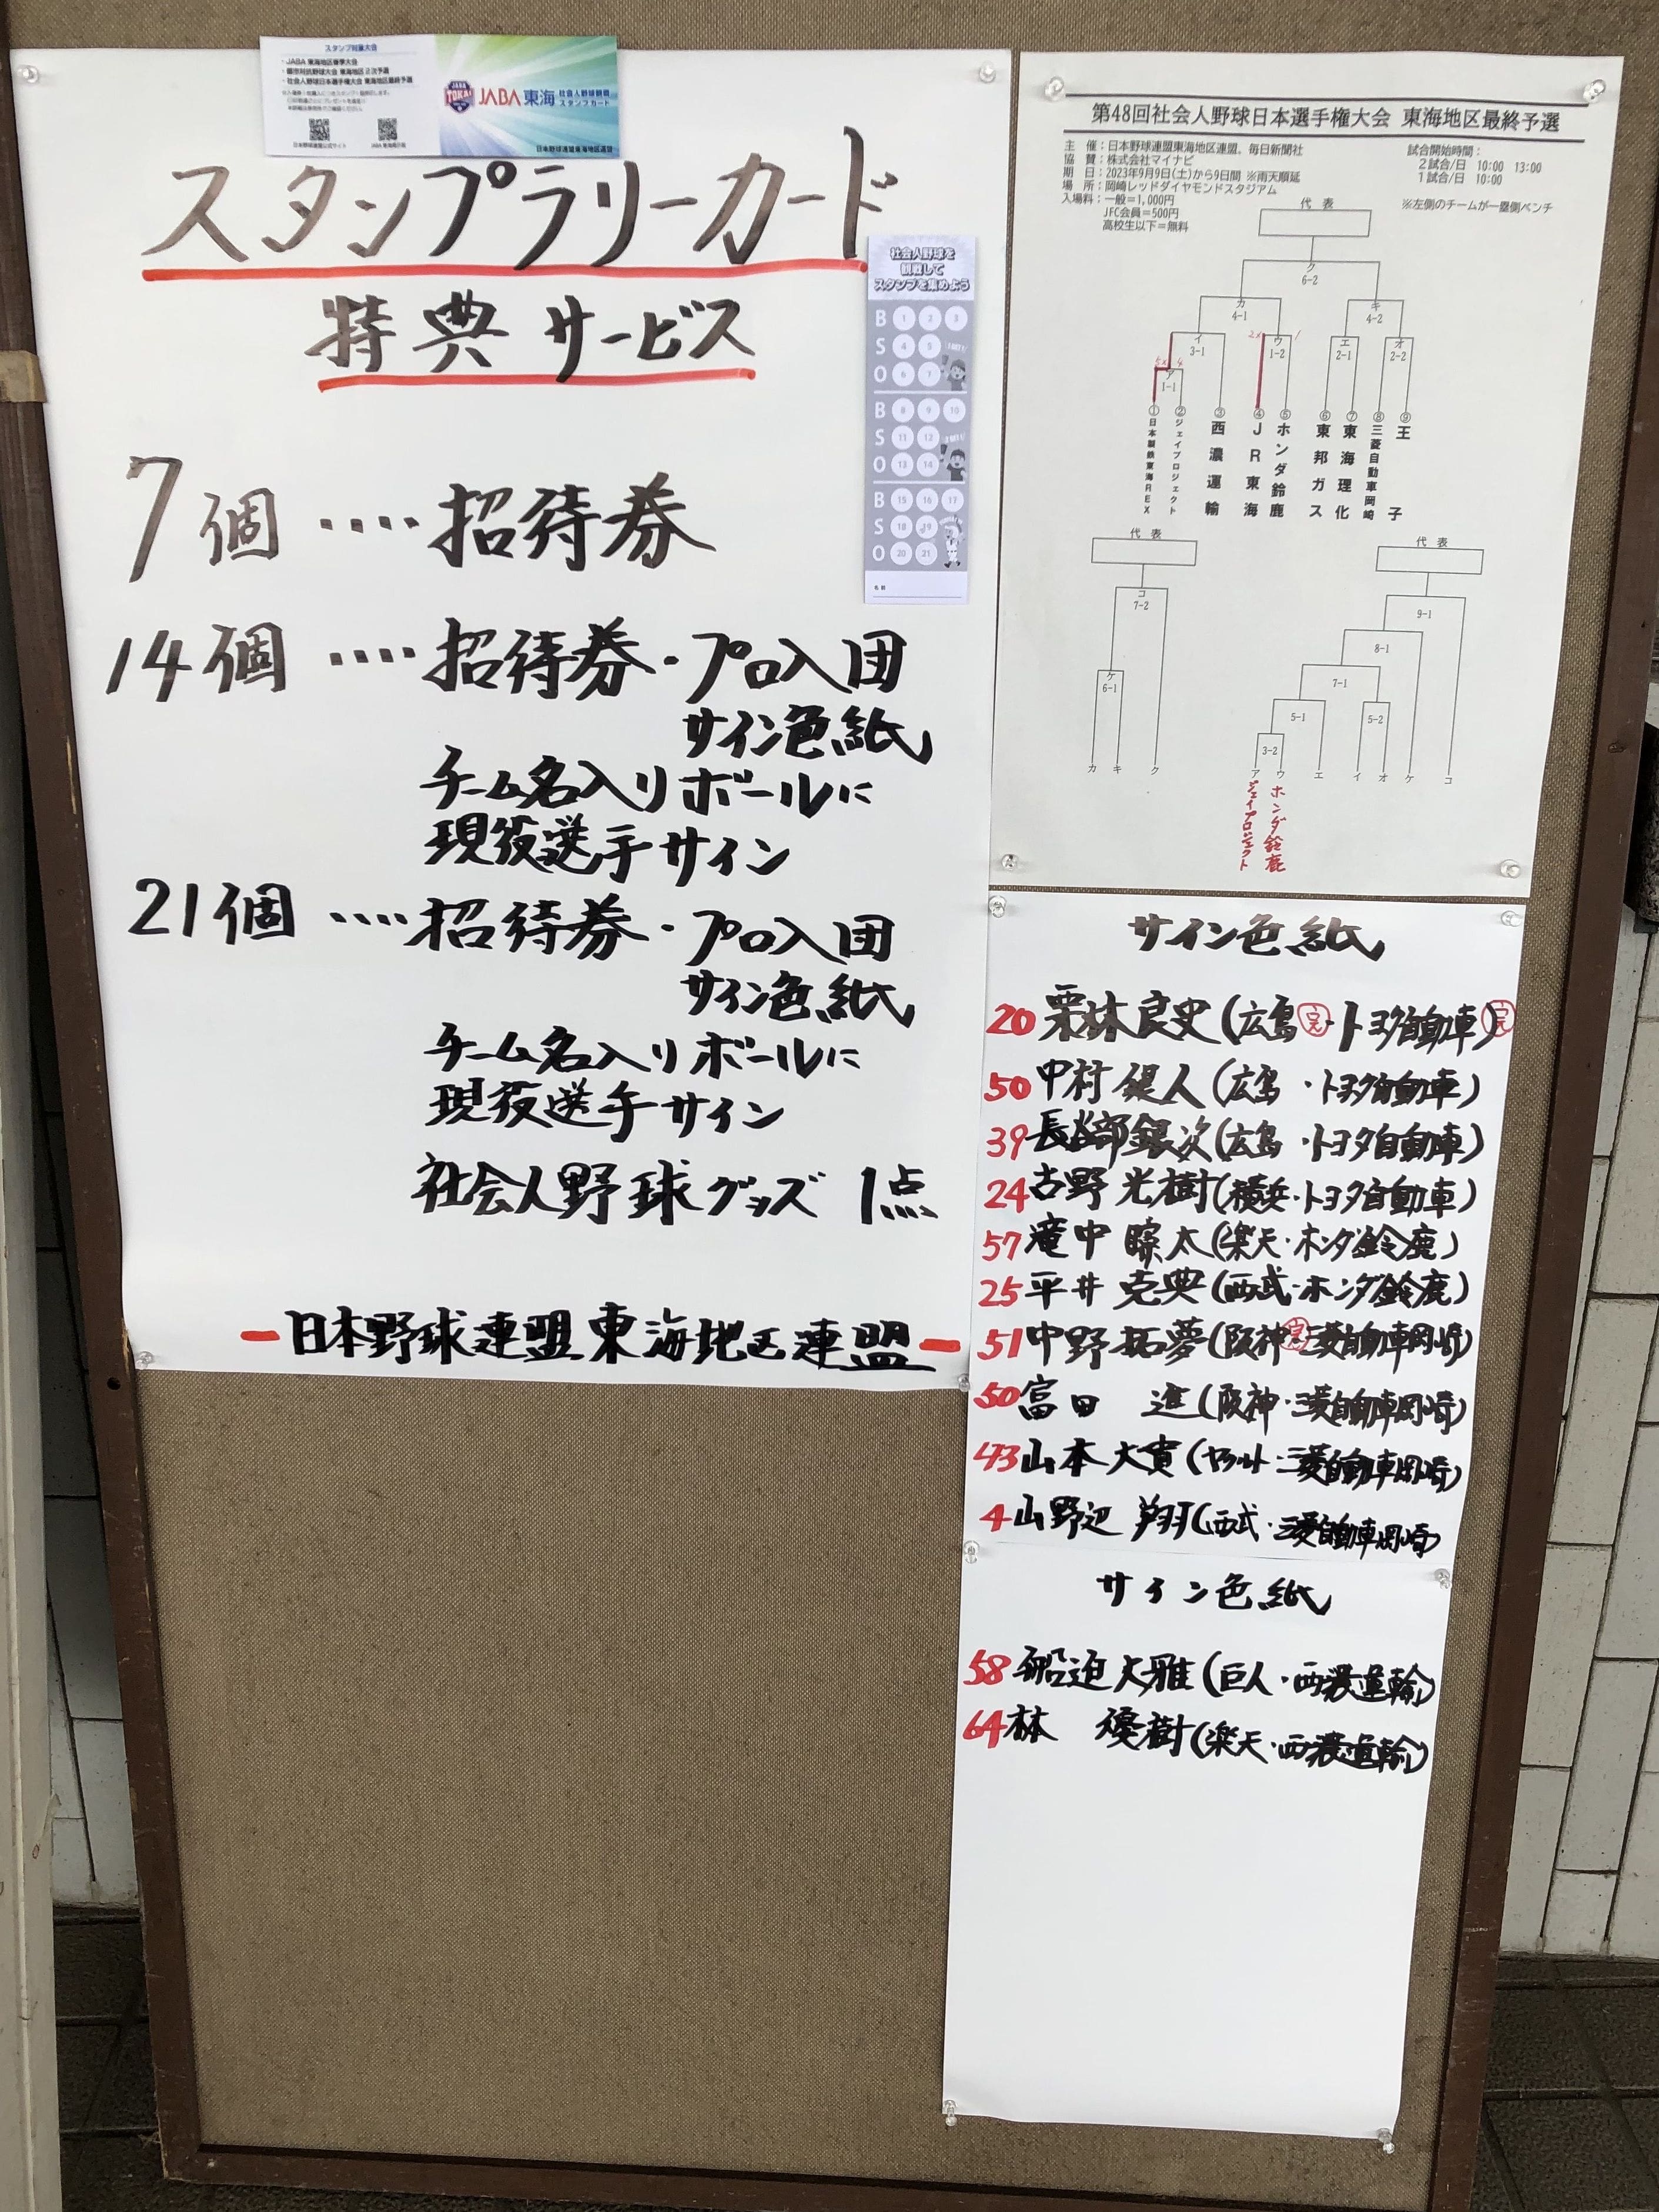 スタンプ対象大会
・JABA 東海地区春季大会
・都市対抗野球大会 東海地区2次予選
・社会人野球日本選手権大会 東海地区最終予選
日本野球連盟公式サイト
JABA 東海掲示板
JABA
TOKAI
JABA東海
社会人野球観戦
スタンプカード
日本野球連盟東海地区連盟
スタンプラリーカード
特典サービス
7個 ‥‥招待券
14個 ‥‥招待券・プロ入団
サイン色紙
チーム名入りボールに
現役選手サイン
21個 ‥‥招待券・プロ入団
サイン色紙
チーム名入りボールに
現役選手サイン
社会人野球グッズ 1点
ー日本野球連盟東海地区連盟ー
社会人野球を
観戦して
スタンプを集めよう
B 1 2 3
S 4 5
O 6 7
B 8 9 10
S 11 12
O 13 14
B 15 16 17
S 18 19
O 20 21
名前
第48回社会人野球日本選手権大会 東海地区最終予選
主 催：日本野球連盟東海地区連盟、毎日新聞社
協 賛：株式会社マイナビ
期 日：2023年9月9日(土)から9日間 ※雨天順延
場 所：岡崎レッドダイヤモンドスタジアム
入場料：一般＝1,000円
JFC会員＝500円
高校生以下＝無料
試合開始時間：
2試合/日 10:00 13:00
1試合/日 10:00
※左側のチームが一塁側ベンチ
代 表
ク
6-2
カ
4-1
キ
4-2
イ
3-1
ウ
1-2
エ
2-1
オ
2-2
ア
1-1
①日本製鉄東海REX
②ジェイプロジェクト
③西濃運輸
④JR東海
⑤ホンダ鈴鹿
⑥東邦ガス
⑦東海理化
⑧三菱自動車岡崎
⑨王子
代 表
コ
7-2
ケ
6-1
カ キ ク
代 表
9-1
8-1
7-1
5-1
5-2
3-2
ア ウ エ イ オ ケ コ
ジェイプロジェクト
ホンダ鈴鹿
サイン色紙
20 栗林良史(広島完・トヨタ自動車)完
50 中村健人(広島・トヨタ自動車)
39 長谷部銀次(広島・トヨタ自動車)
24 吉野光樹(横浜・トヨタ自動車)
57 滝中瞭太(楽天・ホンダ鈴鹿)
25 平井克典(西武・ホンダ鈴鹿)
51 中野拓夢(阪神完・三菱自動車岡崎)
50 富田 進(阪神・三菱自動車岡崎)
43 山本大貴(ヤクルト・三菱自動車岡崎)
4 山野辺 翔(西武・三菱自動車岡崎)
サイン色紙
58 船迫大雅(巨人・西濃運輸)
64 林 優樹(楽天・西濃運輸)